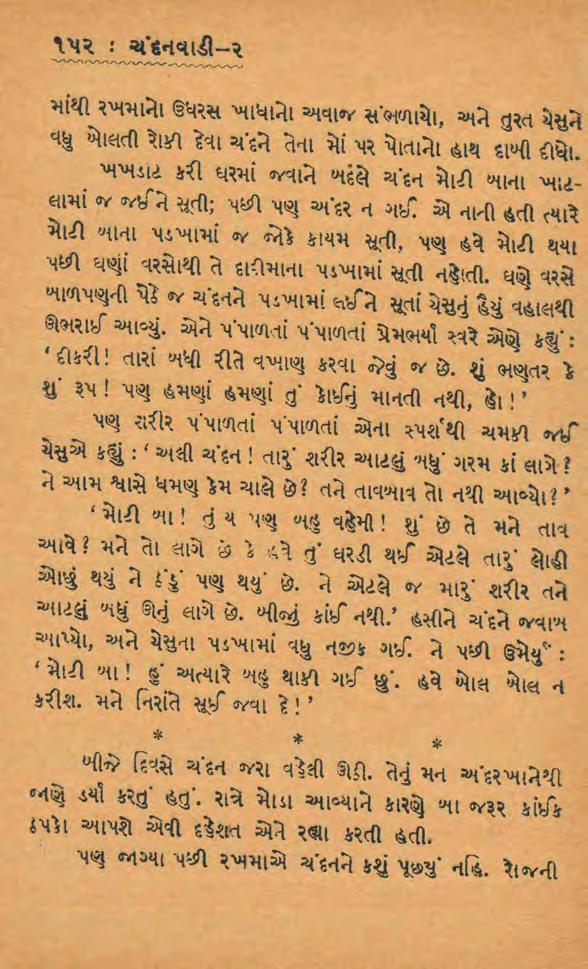 ૧૫૨ : ચંદનવાડી–૨
માંથી રખમાનો ઉધરસ ખાધાનો અવાજ સંભળાયો, અને તુરત યેસુને
વધુ બોલતી રોકી દેવા ચંદને તેના મોં પર પોતાનો હાથ દાબી દીધો.
ખખડાટ કરી ઘરમાં જવાને બદલે ચંદન મોટી બાના ખાટ-
લામાં જ જઈને સૂતી; પછી પણ અંદર ન ગઈ. એ નાની હતી ત્યારે
મોટી બાના પડખામાં જ જોકે કાયમ સૂતી, પણ હવે મોટી થયા
પછી ઘણાં વરસોથી તે દાદીમાના પડખામાં સૂતી નહોતી. ઘણે વરસે
બાળપણની પેઠે જ ચંદનને પડખામાં લઈને સૂતાં યેસુનું હૈયું વહાલથી
ઊભરાઈ આવ્યું. એને પંપાળતાં પંપાળતાં પ્રેમભર્યા સ્વરે એણે કહ્યું :
‘ દીકરી ! તારાં બધી રીતે વખાણ કરવા જેવું જ છે. શું ભણતર કે
શું રૂપ ! પણ હમણાં હમણાં તું કોઈનું માનતી નથી, હો ! ’
પણ શરીર પંપાળતાં પંપાળતાં એના સ્પર્શથી ચમકી જઈ
યેસુએ કહ્યું : ‘ અલી ચંદન ! તારું શરીર આટલું બધું ગરમ કાં લાગે ?
ને આમ શ્વાસે ધમણ કેમ ચાલે છે ? તને તાવબાવ તો નથી આવ્યો ? ’
‘ મોટી બા ! તું ય પણ બહુ વહેમી ! શું છે તે મને તાવ
આવે ? મને તો લાગે છે કે હવે તું ઘરડી થઈ એટલે તારું લોહી
ઓછું થયું ને ઠંડું પણ થયું છે. ને એટલે જ મારું શરીર તને
આટલું બધું ઊનું લાગે છે. બીજું કાંઈ નથી.’ હસીને ચંદને જવાબ
આપ્યો, અને યેસુના પડખામાં વધુ નજીક ગઈ. ને પછી ઉમેર્યું :
‘ મોટી બા ! હું અત્યારે બહુ થાકી ગઈ છું. હવે બોલ બોલ ન
કરીશ. મને નિરાંતે સૂઈ જવા દે ! ’
* * *
બીજે દિવસે ચંદન જરા વહેલી ઊઠી. તેનું મન અંદરખાનેથી
જાણે ડર્યા કરતું હતું. રાત્રે મોડા આવ્યાને કારણે બા જરૂર કાંઈક
ઠપકો આપશે એવી દહેશત એને રહ્યા કરતી હતી.
પણ જાગ્યા પછી રખમાએ ચંદનને કશું પૂછયું નહિ. રોજની